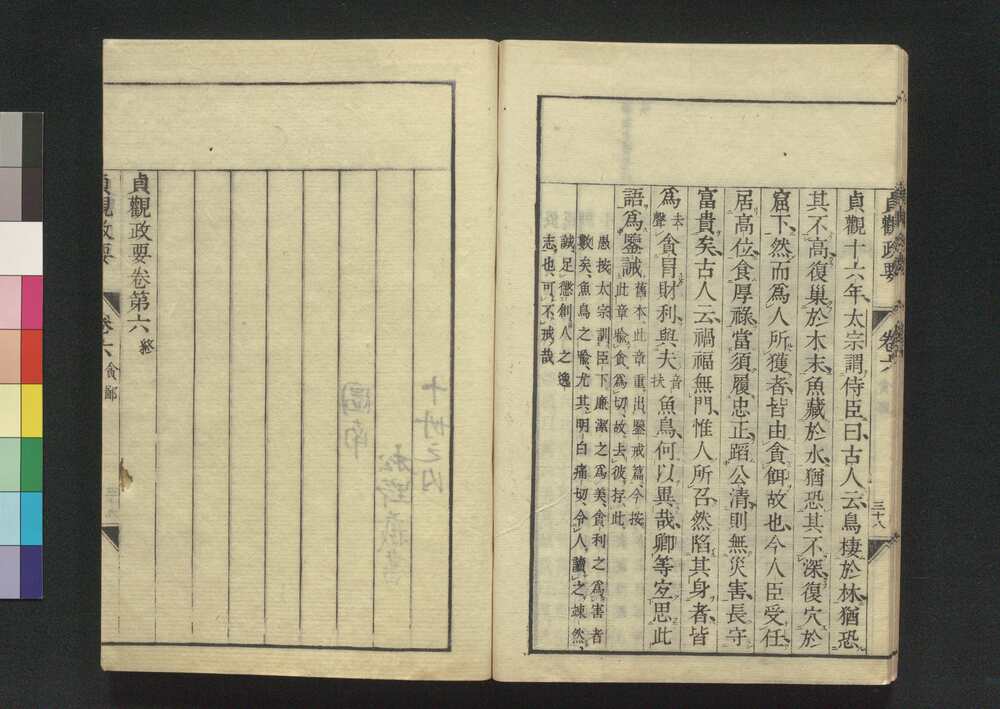 貞觀政要
卷六
三十八
貞觀十六年太宗謂侍臣曰古人云鳥棲於林猶恐
其不高復巢於木末魚藏於水猶恐其不深復穴於
窟下然而爲人所獲者皆由貪餌故也今人臣受任
居高位食厚祿當須履忠正蹈公清則無災害長守
富貴矣古人云禍福無門惟人所召然陷其身者皆
爲去聲貪冒財利與夫音扶魚鳥何以異哉卿等宜思此
語爲鑒誡舊本此章重出鑒戒篇今按
此章喻貪爲切故去彼存此
愚按太宗訓臣下廉潔之爲美貪利之爲害者
數矣魚鳥之喻尤其明白痛切令人讀之竦然
誠足懲創人之逸
志也可不戒哉
貞觀政要卷第六終
貞觀政要
卷六
貪鄙
十冊之內